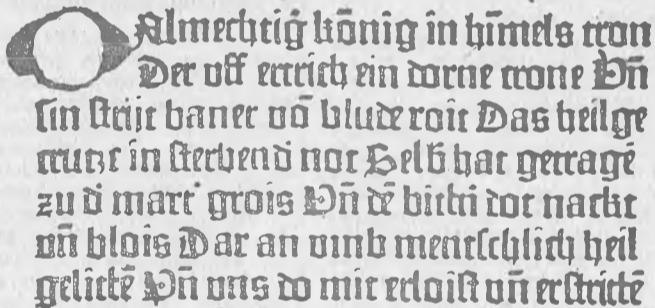 O Almechtig kőnig in hīmels tron
Der uff ertrich ein dorne crone Vñ
sin strijt baner vō blude roit Das heilge
crucze in sterbend not Selb hat getragē
zu d mart' grois Vñ dē bittñ dot nackt
vñ blois Dar an vmb mentschlich heil
gelittē Vñ vns do mit erloist vñ erstrittē